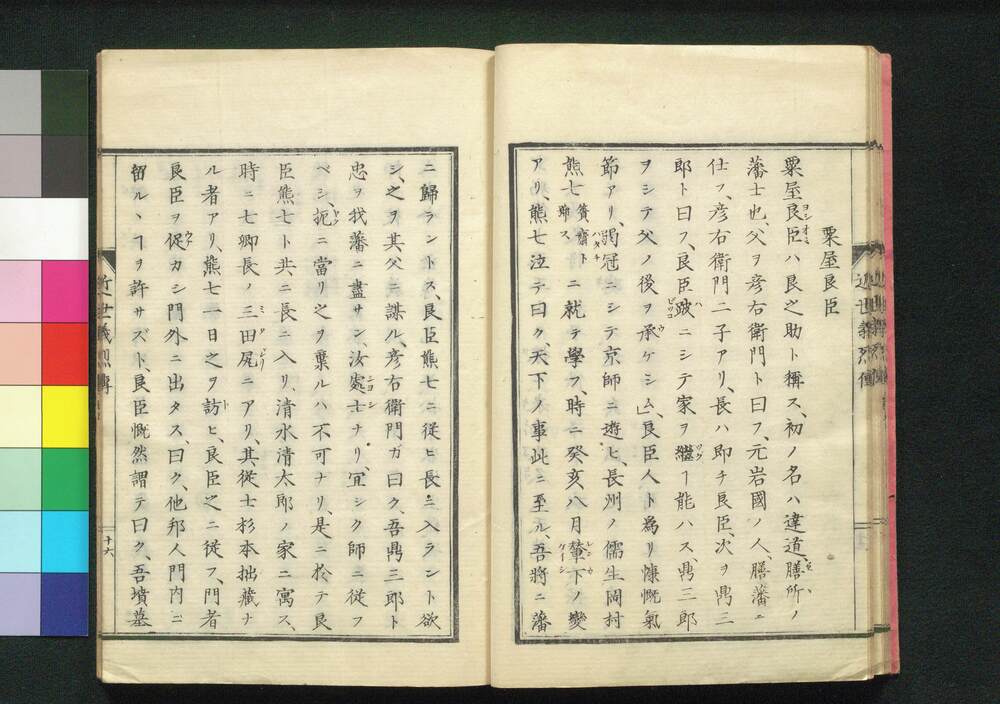 粟屋良臣
粟屋良臣ハ良之助ト稱ス、初ノ名ハ達道、膳所ノ
藩士也、父ヲ彦右衛門ト曰フ、元岩國ノ人、膳藩ニ
仕フ、彦右衛門二子アリ、長ハ即チ良臣、次ヲ鼎三
郎ト曰フ、良臣跛ニシテ家ヲ繼ヿ能ハス、鼎三郎
ヲシテ父ノ後ヲ承ケシム、良臣人ト為リ慷慨氣
節アリ、弱冠ニシテ京師ニ遊ヒ、長州ノ儒生岡村
熊七簣齋ト號スニ就テ學フ、時ニ癸亥八月輦下ノ變
アリ、熊七泣テ曰ク、天下ノ事此ニ至ル、吾將ニ藩
ニ歸ラントス、良臣熊七ニ従ヒ長ニ入ラント欲
シ、之ヲ其父ニ謀ル、彦右衛門ガ曰ク、吾鼎三郎ト
忠ヲ我藩ニ盡サン、汝處士ナリ、冝シク師ニ従フ
ベシ、扼ニ當リ之ヲ棄ルハ不可ナリ、是ニ於テ良
臣熊七ト共ニ長ニ入リ、清水清太郎ノ家ニ寓ス、
時ニ七卿長ノ三田尻ニアリ、其従士杉本拙藏ナ
ル者アリ、熊七一日之ヲ訪ヒ、良臣之ニ従フ、門者
良臣ヲ促カシ門外ニ出タス、曰ク、他邦人門内ニ
留ルヽヿヲ許サズト、良臣慨然謂テ曰ク、吾墳墓
近世義烈傳
十六